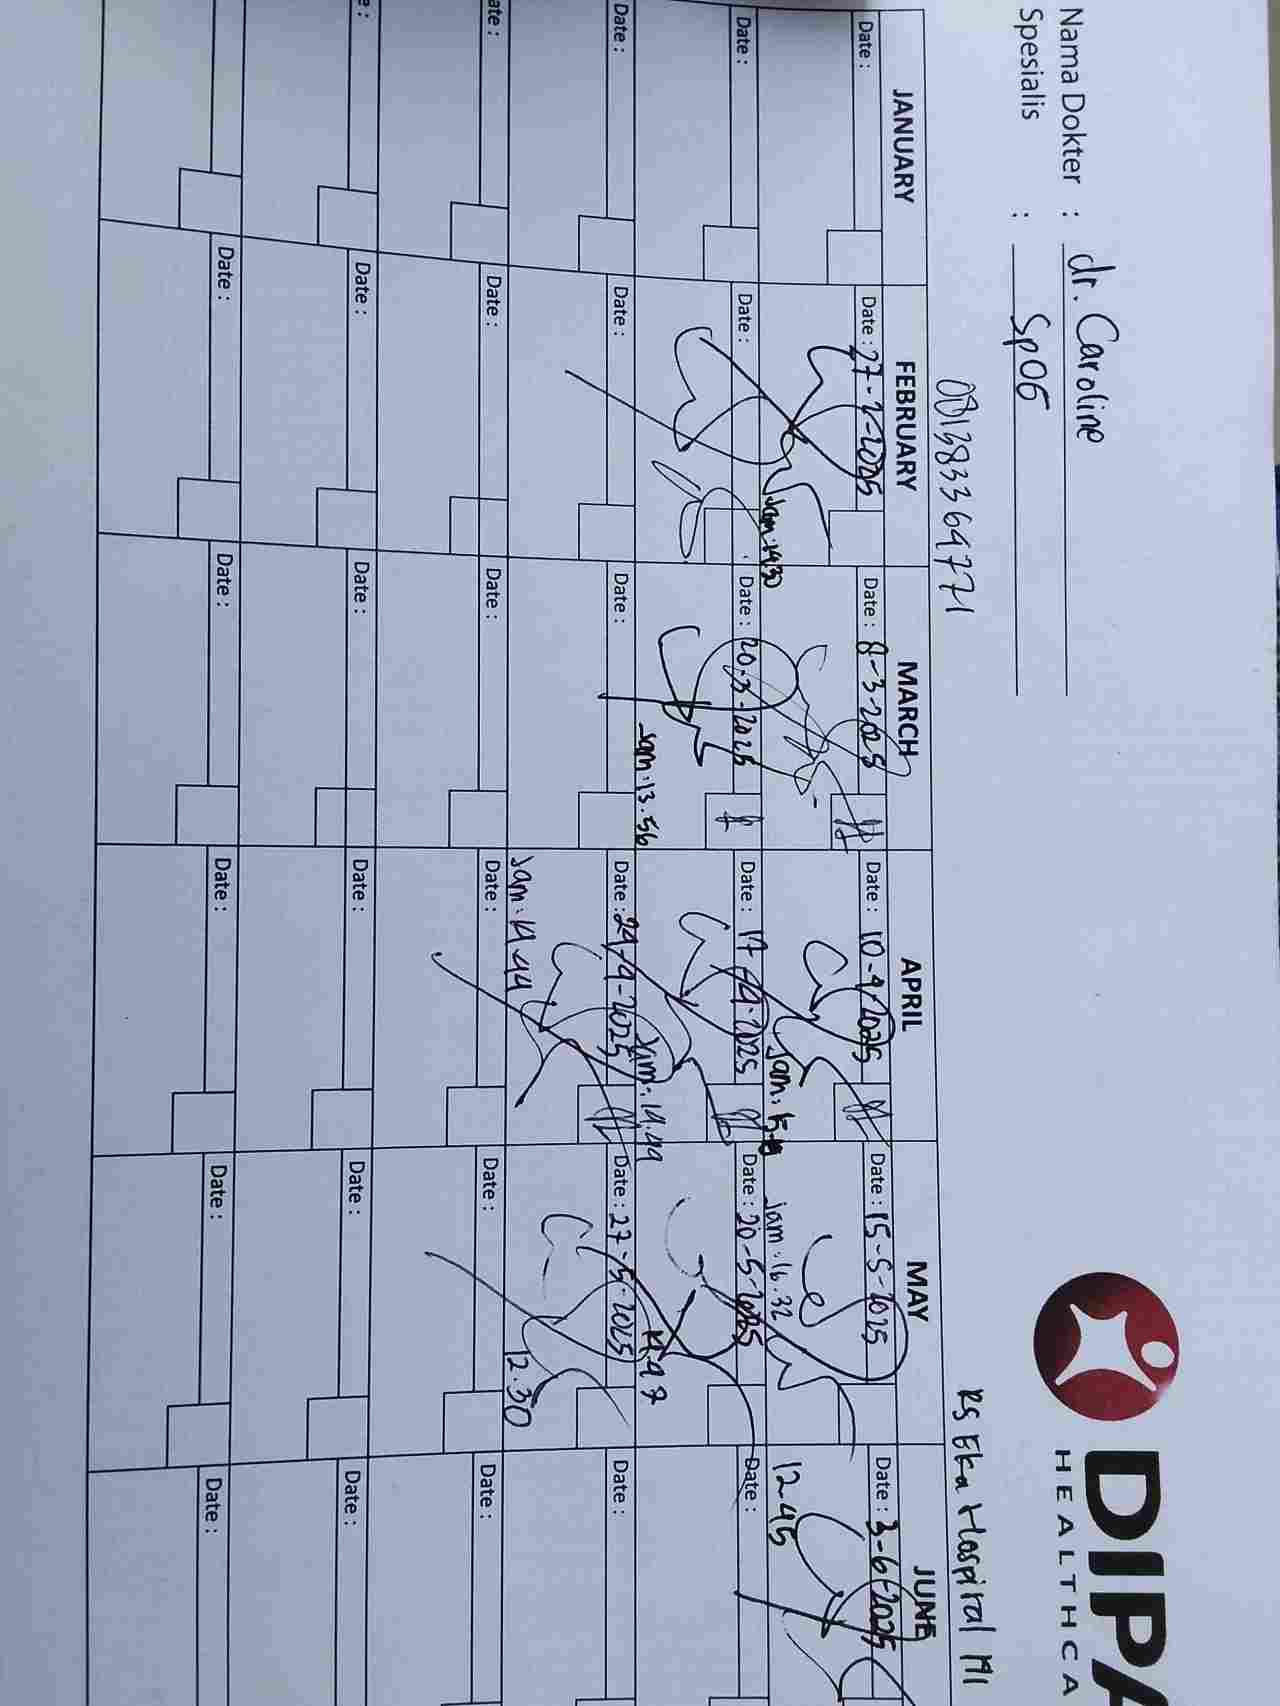 DIPA
HEALTHCA
Nama Dokter : dr. Caroline
Spesialis : SpOG
081383364771
RS Eka Hospital M1
JANUARY FEBRUARY MARCH APRIL MAY JUNE
Date : Date : 27-2-2025 Date : 8-3-2025 Date : 10-4-2025 Date : 15-5-2025 Date : 3-6-2025
Jam: 14.30 Jam: Jam: 16.32 12.45
Date : Date : Date : 20-3-2025 Date : 17-4-2025 Date : 20-5-2025 Date :
Jam: 13.56 Jam: 14.44 14.47
Date : Date : Date : Date : 24-4-2025 Date : 27-5-2025 Date :
Jam: 14.44 12.30
ate : Date : Date : Date : Date : Date :
e : Date : Date : Date : Date : Date :
Date : Date : Date : Date : Date :